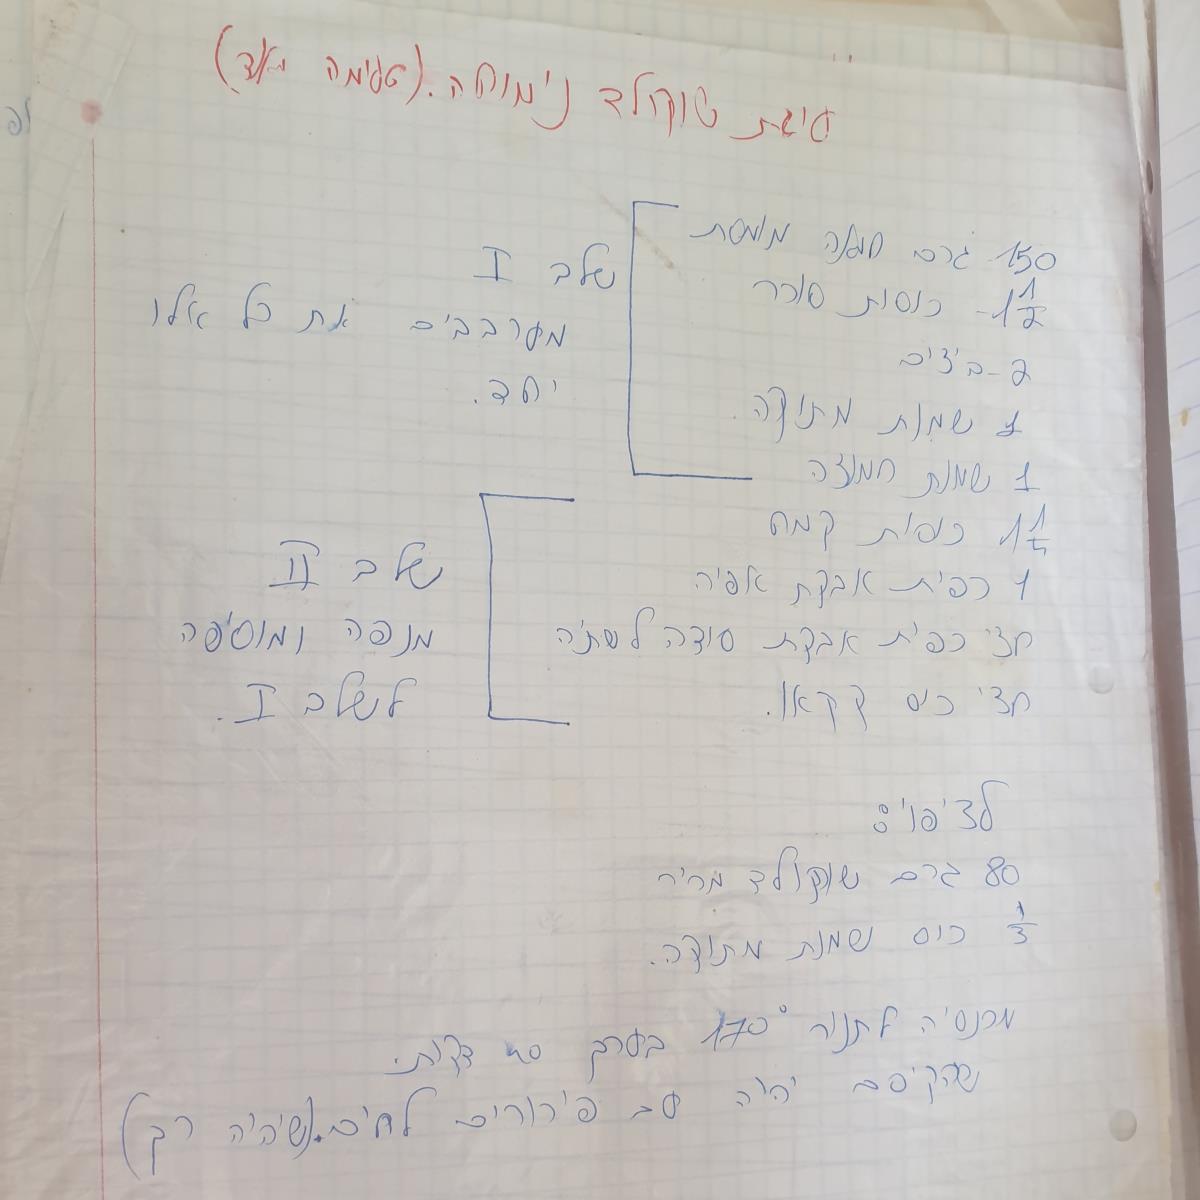 עוגת שוקולד נימוחה. (טעימה מאד)
150 גרם חמאה מומסת
1 1/2 - כוסות סוכר
2 - ביצים
1 שמנת מתוקה.
1 שמנת חמוצה
שלב I
מערבבים את כל אלו
יחד.
1 כוסות קמח
1 כפית אבקת אפיה
חצי כפית אבקת סודה לשתיה
חצי כוס קקאו.
שלב II
מנפה ומוסיפה
לשלב I.
לציפוי:
80 גרם שוקולד מריר
1/3 כוס שמנת מתוקה.
מכנסיה לתנור 170° בערך דקות.
שהקיסם יהיה עם פירורים לחים. (שיהיה רך)